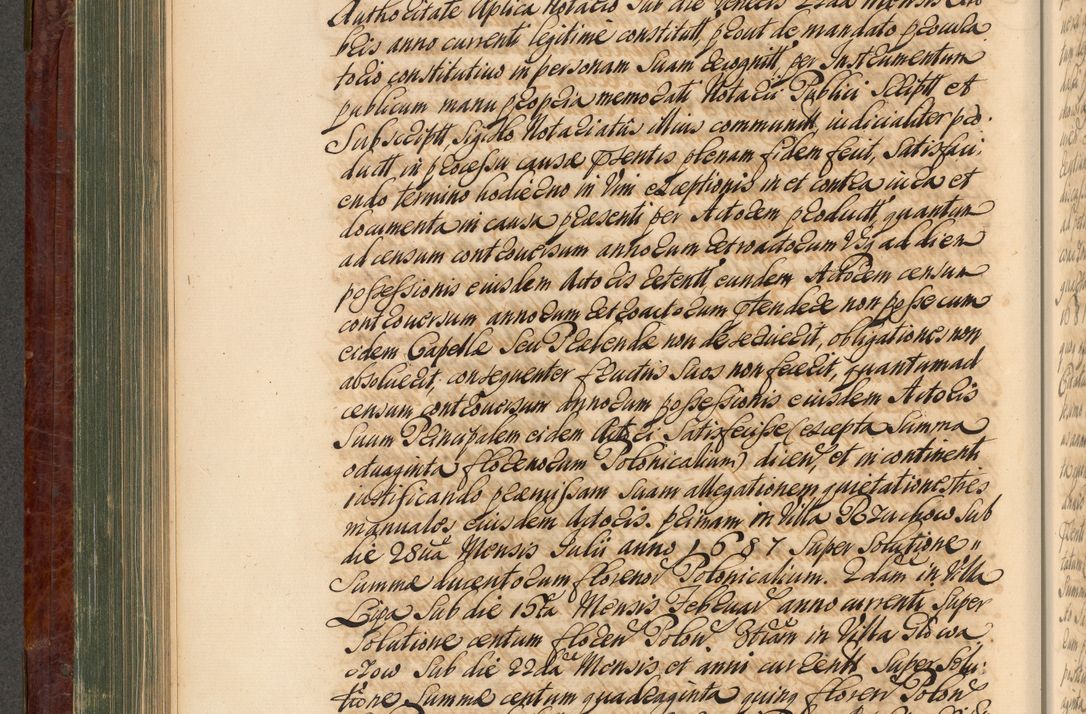 Authoritate Aplica Notario sub die Veneris 22da mensis
bris anno currenti legitime constitutt, prout de mandato procura
torio constitutivo in personam suam recognitt, per Instrumentum
publicum manu propria memorati Notarii Publici Script et
Subscriptt, sigillo Notariatus illius communitt, iudicialiter pro.
ductt, in processu causæ psentis plenam fidem fecit, Satisfaci
endo termino hodierno in Vim exceptionis in et contra iura et
documenta in causa præsenti per Actorem productt, quantum
ad censum controversum annorum retroactorum Usq ad diem
possessionis eiusdem Actoris retentt, eundem Actorem censum
controversum annorum retroactorum ptendere non posse cum
eidem Capellæ seu Præbendæ non deservierit, obligationes non
absolverit, consequenter fructus suos non fecerit, quantum ad
censum controversum annorum possessionis eiusdem Actoris
suum Principalem eidem Actori Satisfecisse (excepta Summa
octuaginta florenorum Polonicalium) dicen, et in continenti
iustificando præmissam suam allegationem quietationes tres
manuales eiusdem Actoris. primam in Villa Rzuchow sub
die 28ua Mensis Iulii anno 1687 super Solutione
Summæ ducentorum florenor Polonicalium. 2dam in Villa
Lipa sub die 15ta Mensis Februar anno currenti super
Solutione centum floren Polon. 3tiam in Villa
sub die 22da Mensis et anni currentt super Solu-
tione Summæ centum quadraginta quinq floren Polon